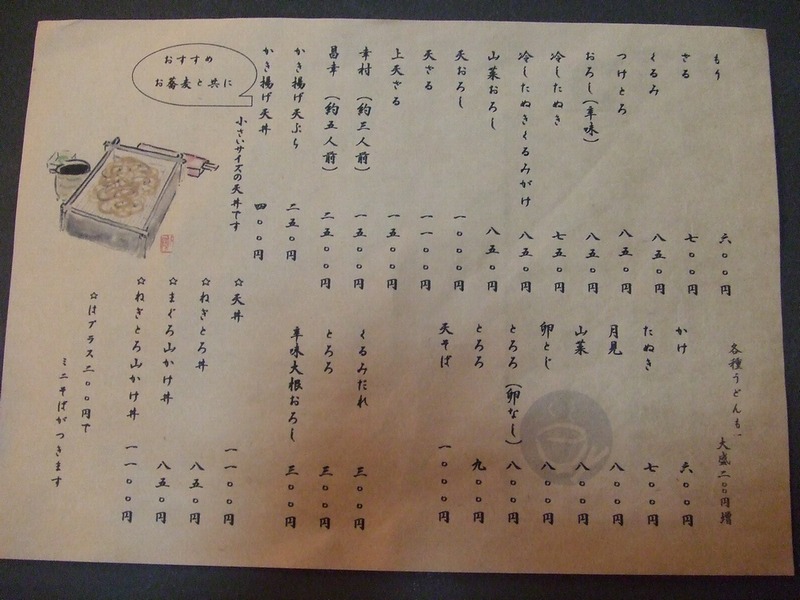 もり 六〇〇円
ざる 七〇〇円
くるみ 八五〇円
つけとろ 八五〇円
おろし(辛味) 八五〇円
冷したぬき 七五〇円
冷したぬきくるみがけ 八五〇円
山菜おろし 八五〇円
天おろし 一〇〇〇円
天ざる 一一〇〇円
上天ざる 一五〇〇円
幸村 (約三人前) 一五〇〇円
昌幸 (約五人前) 二五〇〇円
かき揚げ天ぷら 二五〇円
かき揚げ天丼 四〇〇円
小さいサイズの天丼です
おすすめ
お蕎麦と共に
各種うどんも、大盛二〇〇円増
かけ 六〇〇円
たぬき 七〇〇円
月見 八〇〇円
山菜 八〇〇円
卵とじ 八〇〇円
とろろ (卵なし) 八〇〇円
とろろ 九〇〇円
天そば 一〇〇〇円
くるみだれ 三〇〇円
とろろ 三〇〇円
辛味大根おろし 三〇〇円
☆天丼 一一〇〇円
☆ねぎとろ丼 八五〇円
☆まぐろ山かけ丼 八五〇円
☆ねぎとろ山かけ丼 一一〇〇円
☆はプラス二〇〇円で
ミニそばがつきます